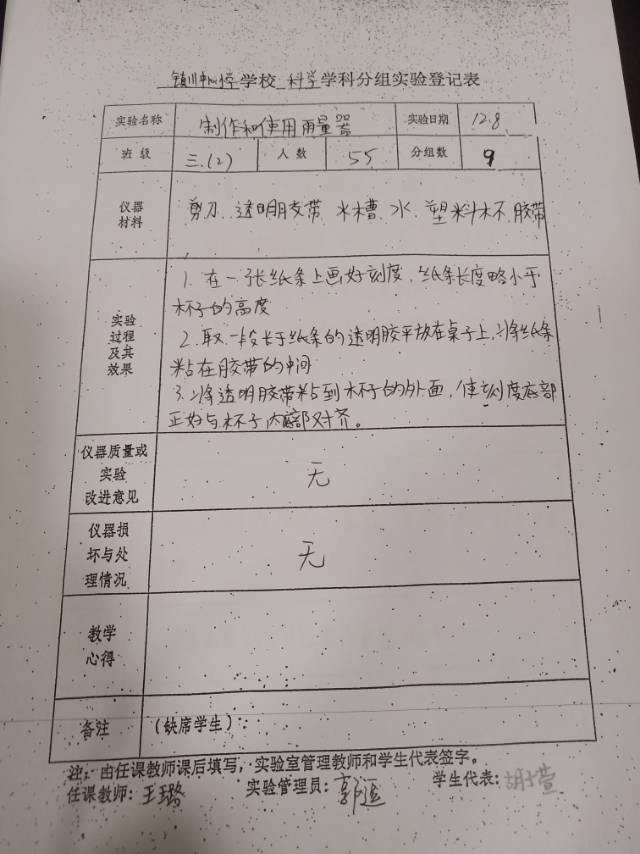 镇川中心校学校 科学学科分组实验登记表
实验名称 制作和使用雨量器 实验日期 12.8
班级 三.(2) 人数 55 分组数 9
仪器材料 剪刀、透明胶带 水槽、水、塑料杯、胶带
实验过程及其效果
1. 在一张纸条上画好刻度,纸条长度略小于
杯子的高度
2. 取一段长于纸条的透明胶平放在桌子上,将纸条
粘在胶带的中间
3. 将透明胶带粘到杯子的外面,使刻度底部
正好与杯子内底部对齐。
仪器质量或实验改进意见 无
仪器损坏与处理情况 无
教学心得
备注 (缺席学生):
注:由任课教师课后填写,实验室管理教师和学生代表签字。
任课教师:王璐 实验管理员:郭 学生代表:胡